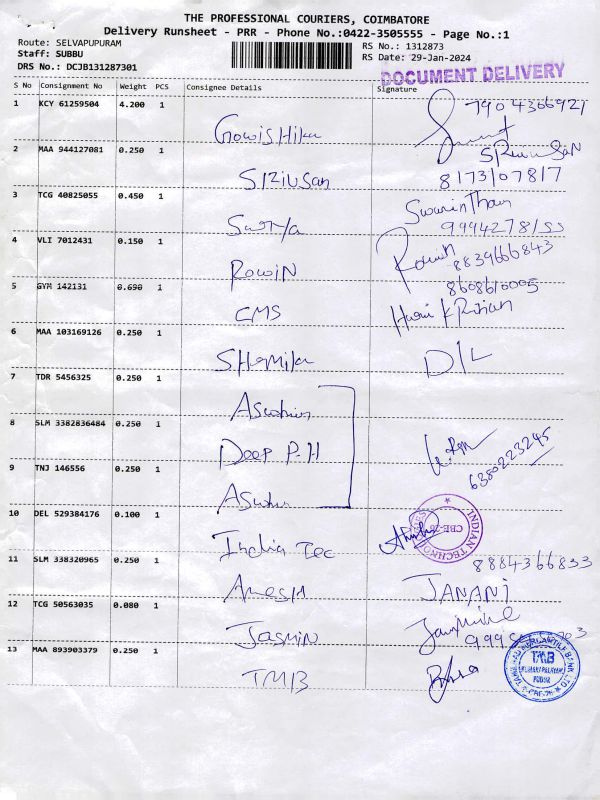 THE PROFESSIONAL COURIERS, COIMBATORE
Delivery Runsheet - PRR - Phone No.:0422-3505555 - Page No.:1
Route: SELVAPUPURAM
Staff: SUBBU
DRS No.: DCJB131287301
RS No.: 1312873
RS Date: 29-Jan-2024
DOCUMENT DELIVERY
S No Consignment No Weight PCS Consignee Details Signature
1 KCY 61259504 4.200 1
7904366921
2 MAA 944127081 0.250 1
8173107817
3 TCG 40825055 0.450 1 Surya
4 VLI 7012431 0.150 1 Rowin
8839666843
5 GYM 142131 0.690 1 CMS
8608610005
6 MAA 103169126 0.250 1 D/L
7 TDR 5456325 0.250 1
8 SLM 3382836484 0.250 1 Deep P.H
6380223245
9 TNJ 146556 0.250 1
10 DEL 529384176 0.100 1 India Tec
INDIAN TECHNOLOGIES
CBE-26
11 SLM 338320965 0.250 1 JANANI
8884366833
12 TCG 50563035 0.080 1 Jasmin
13 MAA 893903379 0.250 1 TMB
TMB